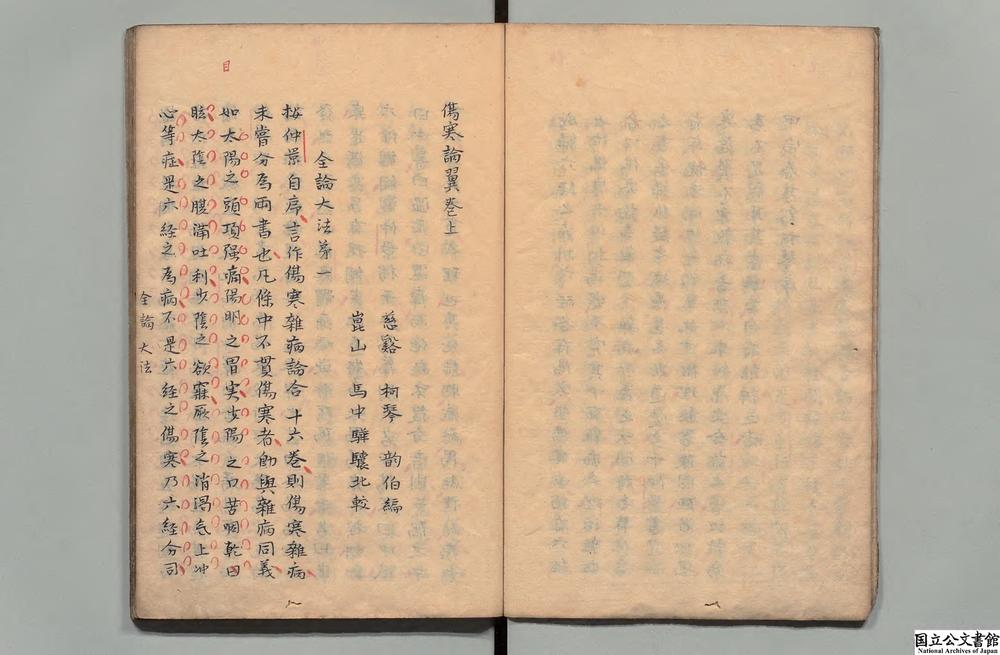 傷寒論翼巻上
慈谿 柯琴 韵伯編
崑山 馬中驊驤北較
全論大法第一
按仲景自序言作傷寒雑病論合十六巻則傷寒雑病
未嘗分為両書也凡條中不貫傷寒者即與雑病同義
如太陽之頭項强痛陽明之胃実少陽之口苦咽乾目
眩太陰之腹満吐利少陰之欲寐厥陰之消渇气上冲
心等症是六経之為病不是六経之傷寒乃六経分司
全論大法
目
国立公文書館
National Archives of Japan